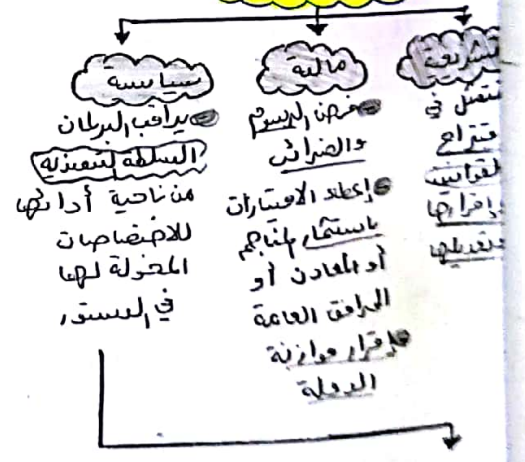 تشريعية
تتمثل في
اقتراح
القوانين
وإقرارها
وتعديلها
مالية
فرض الرسوم
والضرائب
إعطاء الامتيازات
باستثمار المناجم
أو المعادن أو
المرافق العامة
إقرار موازنة
الدولة
سياسية
يراقب البرلمان
السلطة التنفيذية
من ناحية أدائها
للاختصاصات
المخولة لها
في الدستور